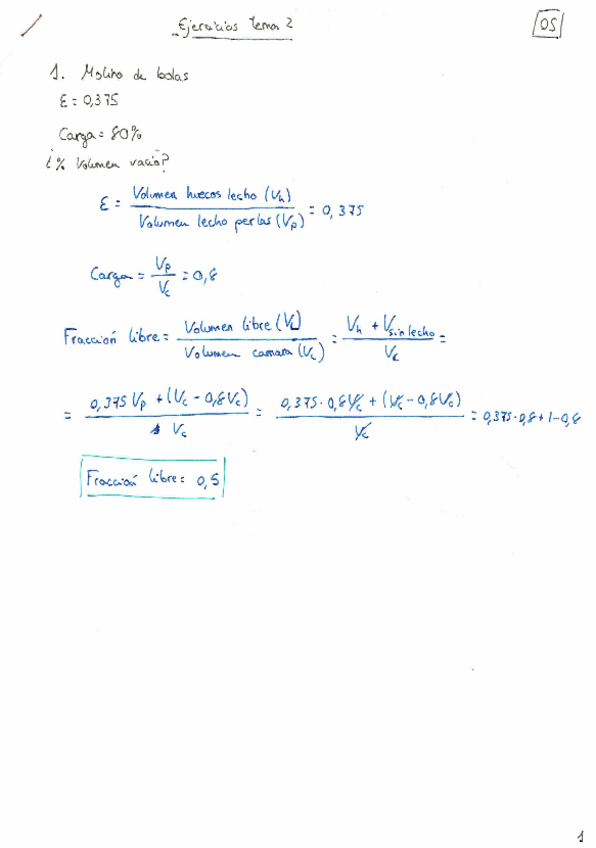 Ejercicios tema 2
05
1. Molino de bolas
ε = 0,375
Carga = 80%
¿% Volumen vacío?
ε = Volumen huecos lecho (Vh) / Volumen lecho perlas (Vp) = 0,375
Carga = Vp / Vc = 0,8
Fracción libre = Volumen libre (VL) / Volumen camara (Vc) = Vh + Vsin lecho / Vc =
= 0,375 Vp + (Vc - 0,8Vc) / Vc = 0,375 · 0,8Vc + (Vc - 0,8Vc) / Vc = 0,375·0,8 + 1 - 0,8
Fracción libre = 0,5
1